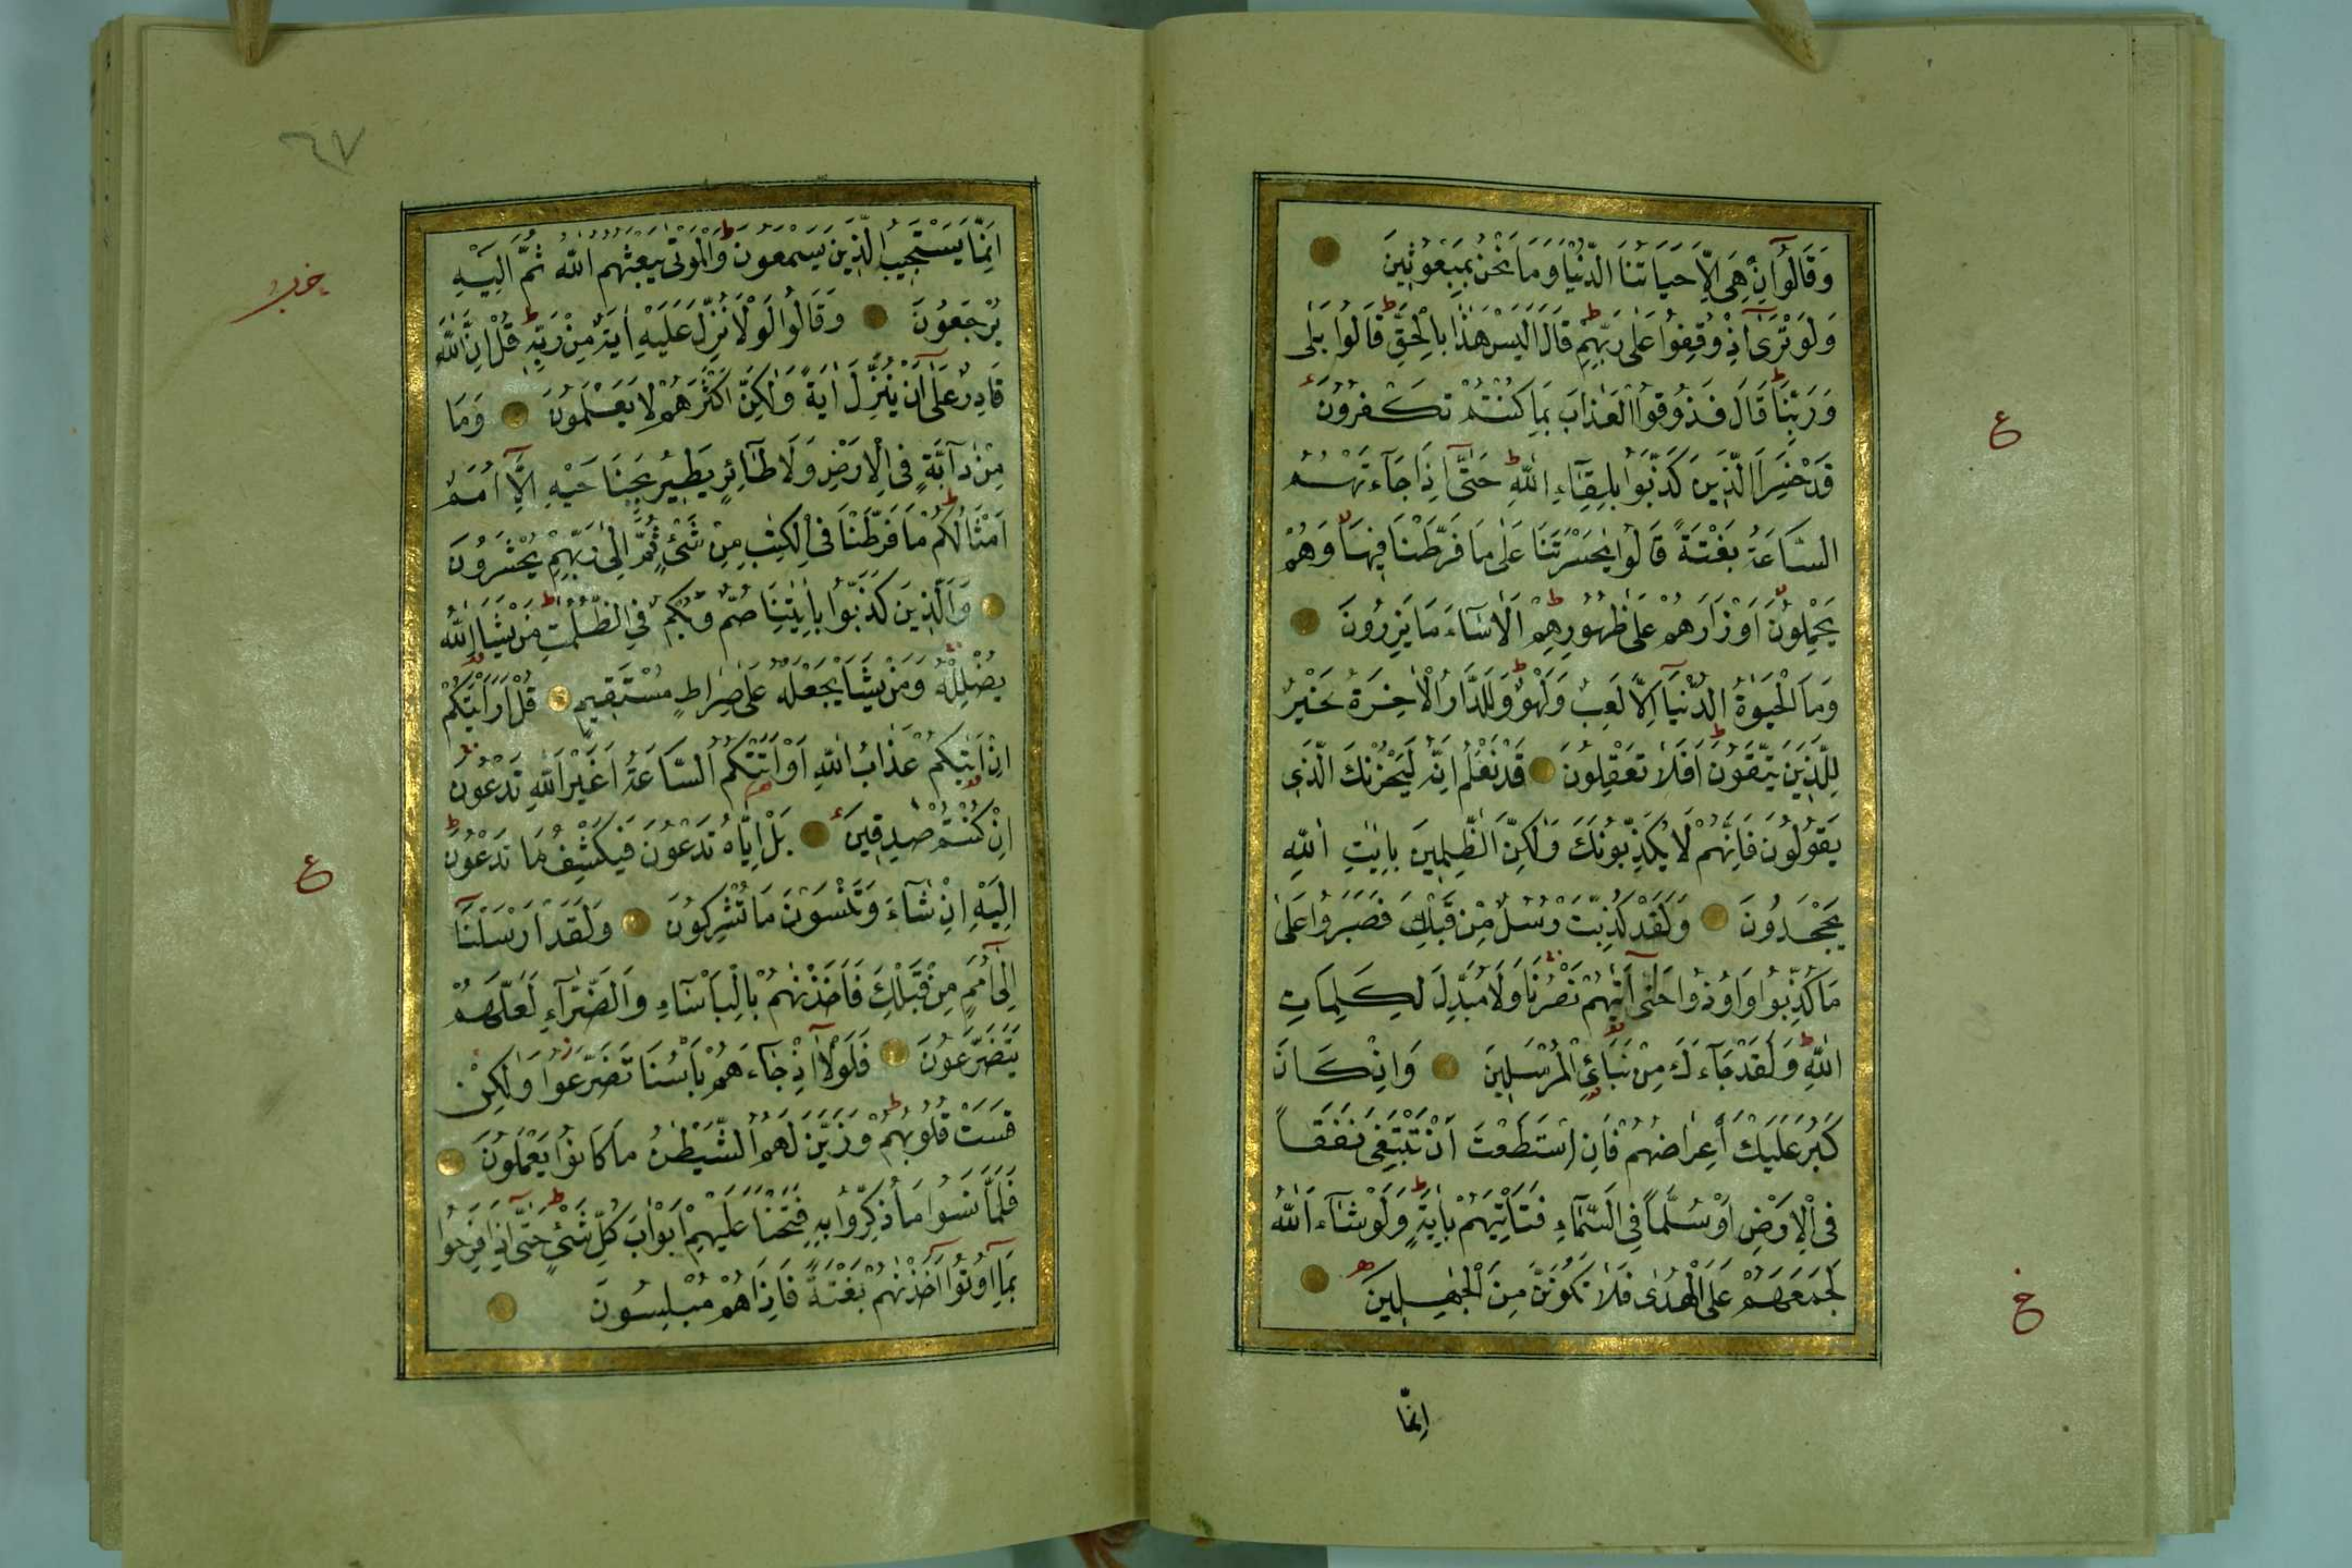 وَقَالُوٓا اِنْ هِىَ اِلَّا حَيَاتُنَا الدُّنْيَا وَمَا نَحْنُ بِمَبْعُوثِينَ
وَلَوْ تَرٰٓى اِذْ وُقِفُوا عَلٰى رَبِّهِمْ قَالَ اَلَيْسَ هٰذَا بِالْحَقِّ قَالُوا بَلٰى
وَرَبِّنَا قَالَ فَذُوقُوا الْعَذَابَ بِمَا كُنْتُمْ تَكْفُرُونَ
قَدْ خَسِرَ الَّذِينَ كَذَّبُوا بِلِقَٓاءِ اللّٰهِ حَتّٰٓى اِذَا جَٓاءَتْهُمُ
السَّاعَةُ بَغْتَةً قَالُوا يٰحَسْرَتَنَا عَلٰى مَا فَرَّطْنَا فِيهَا وَهُمْ
يَحْمِلُونَ اَوْزَارَهُمْ عَلٰى ظُهُورِهِمْ اَلَا سَٓاءَ مَا يَزِرُونَ
وَمَا الْحَيٰوةُ الدُّنْيَٓا اِلَّا لَعِبٌ وَلَهْوٌ وَلَلدَّارُ الْاٰخِرَةُ خَيْرٌ
لِلَّذِينَ يَتَّقُونَ اَفَلَا تَعْقِلُونَ قَدْ نَعْلَمُ اِنَّهُ لَيَحْزُنُكَ الَّذِى
يَقُولُونَ فَاِنَّهُمْ لَا يُكَذِّبُونَكَ وَلٰكِنَّ الظّٰلِمِينَ بِاٰيٰتِ اللّٰهِ
يَجْحَدُونَ وَلَقَدْ كُذِّبَتْ رُسُلٌ مِنْ قَبْلِكَ فَصَبَرُوا عَلٰى
مَا كُذِّبُوا وَاُوذُوا حَتّٰٓى اَتٰيهُمْ نَصْرُنَا وَلَا مُبَدِّلَ لِكَلِمَاتِ
اللّٰهِ وَلَقَدْ جَٓاءَكَ مِنْ نَبَائِ الْمُرْسَلِينَ وَاِنْ كَانَ
كَبُرَ عَلَيْكَ اِعْرَاضُهُمْ فَاِنِ اسْتَطَعْتَ اَنْ تَبْتَغِىَ نَفَقًا
فِى الْاَرْضِ اَوْ سُلَّمًا فِى السَّمَٓاءِ فَتَاْتِيَهُمْ بِاٰيَةٍ وَلَوْ شَٓاءَ اللّٰهُ
لَجَمَعَهُمْ عَلَى الْهُدٰى فَلَا تَكُونَنَّ مِنَ الْجٰهِلِينَ
اِنَّمَا
ع
ع
٦٧
اِنَّمَا يَسْتَجِيبُ الَّذِينَ يَسْمَعُونَ وَالْمَوْتٰى يَبْعَثُهُمُ اللّٰهُ ثُمَّ اِلَيْهِ
يُرْجَعُونَ وَقَالُوا لَوْلَا نُزِّلَ عَلَيْهِ اٰيَةٌ مِنْ رَبِّهِ قُلْ اِنَّ اللّٰهَ
قَادِرٌ عَلٰٓى اَنْ يُنَزِّلَ اٰيَةً وَلٰكِنَّ اَكْثَرَهُمْ لَا يَعْلَمُونَ وَمَا
مِنْ دَٓابَّةٍ فِى الْاَرْضِ وَلَا طَٓائِرٍ يَطِيرُ بِجَنَاحَيْهِ اِلَّٓا اُمَمٌ
اَمْثَالُكُمْ مَا فَرَّطْنَا فِى الْكِتٰبِ مِنْ شَىْءٍ ثُمَّ اِلٰى رَبِّهِمْ يُحْشَرُونَ
وَالَّذِينَ كَذَّبُوا بِاٰيٰتِنَا صُمٌّ وَبُكْمٌ فِى الظُّلُمٰتِ مَنْ يَشَاِ اللّٰهُ
يُضْلِلْهُ وَمَنْ يَشَاْ يَجْعَلْهُ عَلٰى صِرَاطٍ مُسْتَقِيمٍ قُلْ اَرَاَيْتَكُمْ
اِنْ اَتٰيكُمْ عَذَابُ اللّٰهِ اَوْ اَتَتْكُمُ السَّاعَةُ اَغَيْرَ اللّٰهِ تَدْعُونَ
اِنْ كُنْتُمْ صٰدِقِينَ بَلْ اِيَّاهُ تَدْعُونَ فَيَكْشِفُ مَا تَدْعُونَ
اِلَيْهِ اِنْ شَٓاءَ وَتَنْسَوْنَ مَا تُشْرِكُونَ وَلَقَدْ اَرْسَلْنَٓا
اِلٰٓى اُمَمٍ مِنْ قَبْلِكَ فَاَخَذْنٰهُمْ بِالْبَاْسَٓاءِ وَالضَّرَّٓاءِ لَعَلَّهُمْ
يَتَضَرَّعُونَ فَلَوْلَٓا اِذْ جَٓاءَهُمْ بَاْسُنَا تَضَرَّعُوا وَلٰكِنْ
قَسَتْ قُلُوبُهُمْ وَزَيَّنَ لَهُمُ الشَّيْطٰنُ مَا كَانُوا يَعْمَلُونَ
فَلَمَّا نَسُوا مَا ذُكِّرُوا بِهِ فَتَحْنَا عَلَيْهِمْ اَبْوَابَ كُلِّ شَىْءٍ حَتّٰٓى اِذَا فَرِحُوا
بِمَٓا اُوتُٓوا اَخَذْنٰهُمْ بَغْتَةً فَاِذَا هُمْ مُبْلِسُونَ
ع